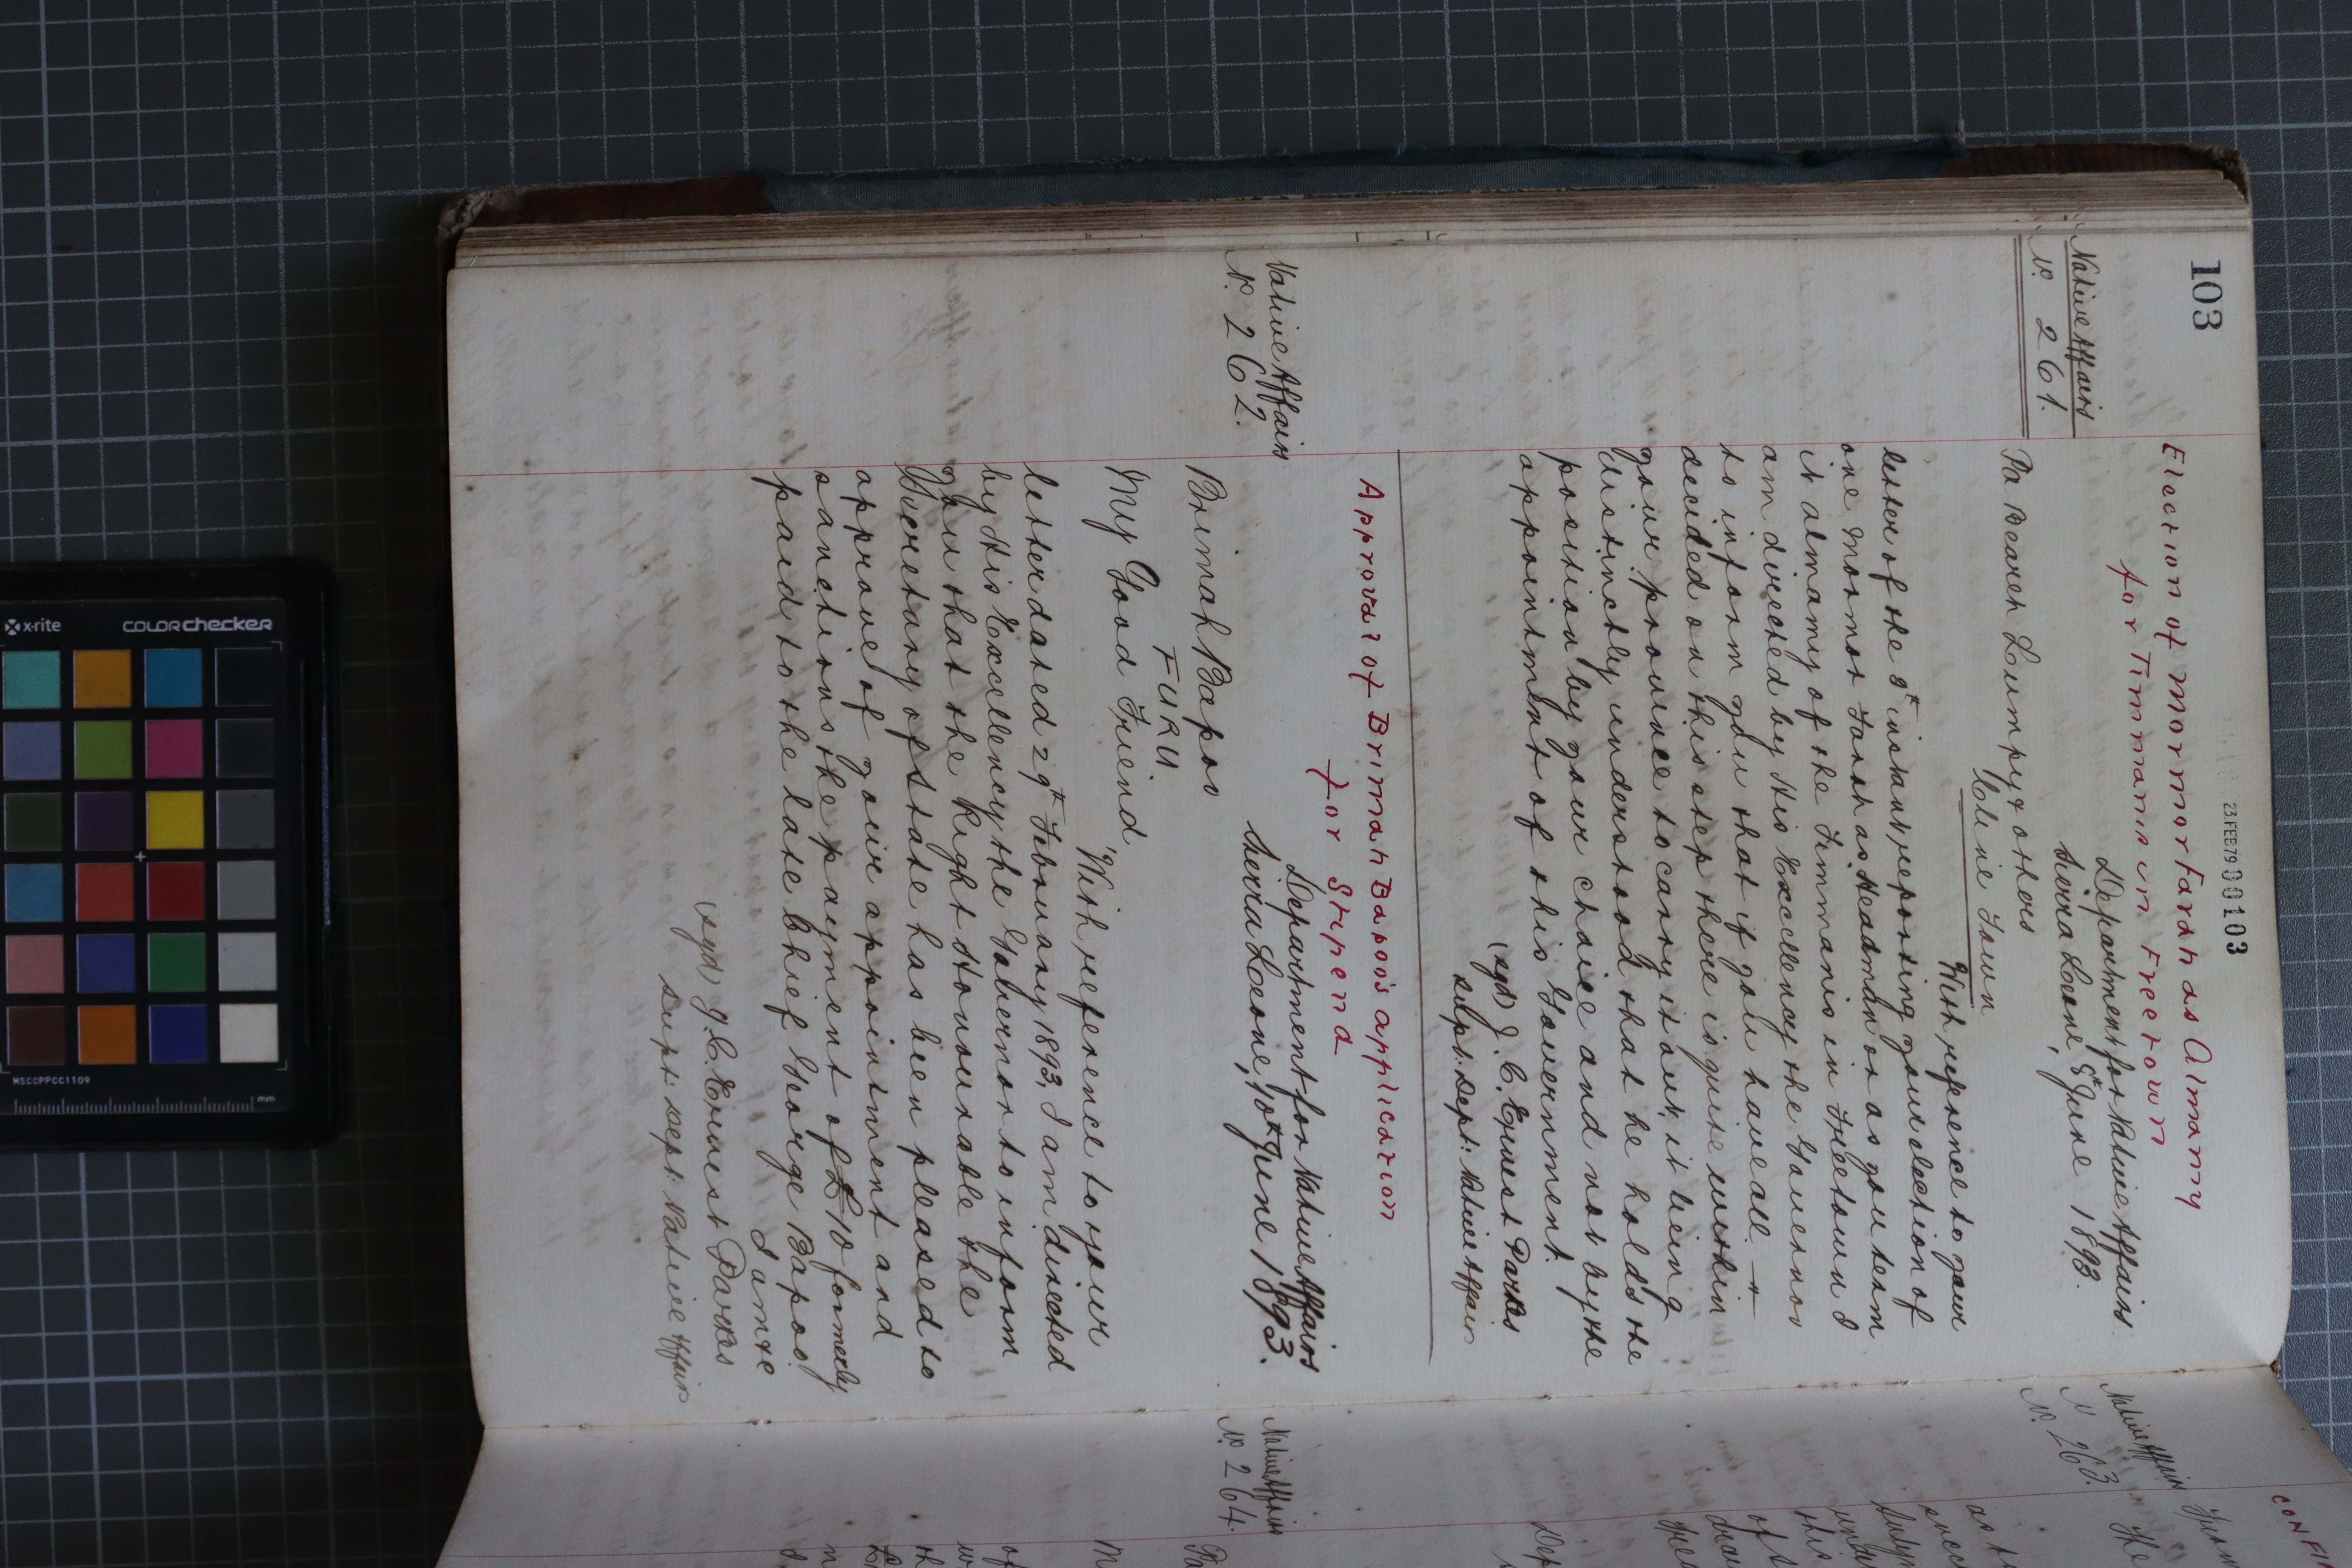 103
23 FEB 79 00103
Election of Mormor Farah as Almamy
for Timmanis in Freetown
Native Affairs
No. 261.
Department for Native Affairs
Sierra Leone, 5th June 1893.
Pa Beareh Lumpy & others
Cline Town
With reference to your
letter of the 3d instant, reporting your election of
one Mormor Farah as Headman or as you term
it Almamy of the Timmanis in Freetown I
am directed by His Excellency the Governor
to inform you that if you have all
decided on this step there is quite within
your province to carry it out, it being
distinctly understood that he holds the
position by your choice and not by the
appointment of this Government.
(sgd) J. C. Ernest Parkes
Supt: Dept: Native Affairs
Approval of Brimah Bapoo's application
for Stipend
Native Affairs
No. 262.
Department for Native Affairs
Sierra Leone, 10th June 1893.
Brimah Bapoo
FURU
My Good Friend,
With reference to your
letter dated 29th February 1893, I am directed
by His Excellency the Governor to inform
you that the Right Honourable the
Secretary of State has been pleased to
approve of your appointment and
sanctions the payment of £10 formerly
paid to the late Chief George Bapoo.
I am &c
(sgd) J. C. Ernest Parkes
Supt: Dept: Native Affairs
CONFI
Native Affairs
No. 263.
Native Affairs
No. 264.
x-rite
COLORchecker
MSCCPPCC1109
mm